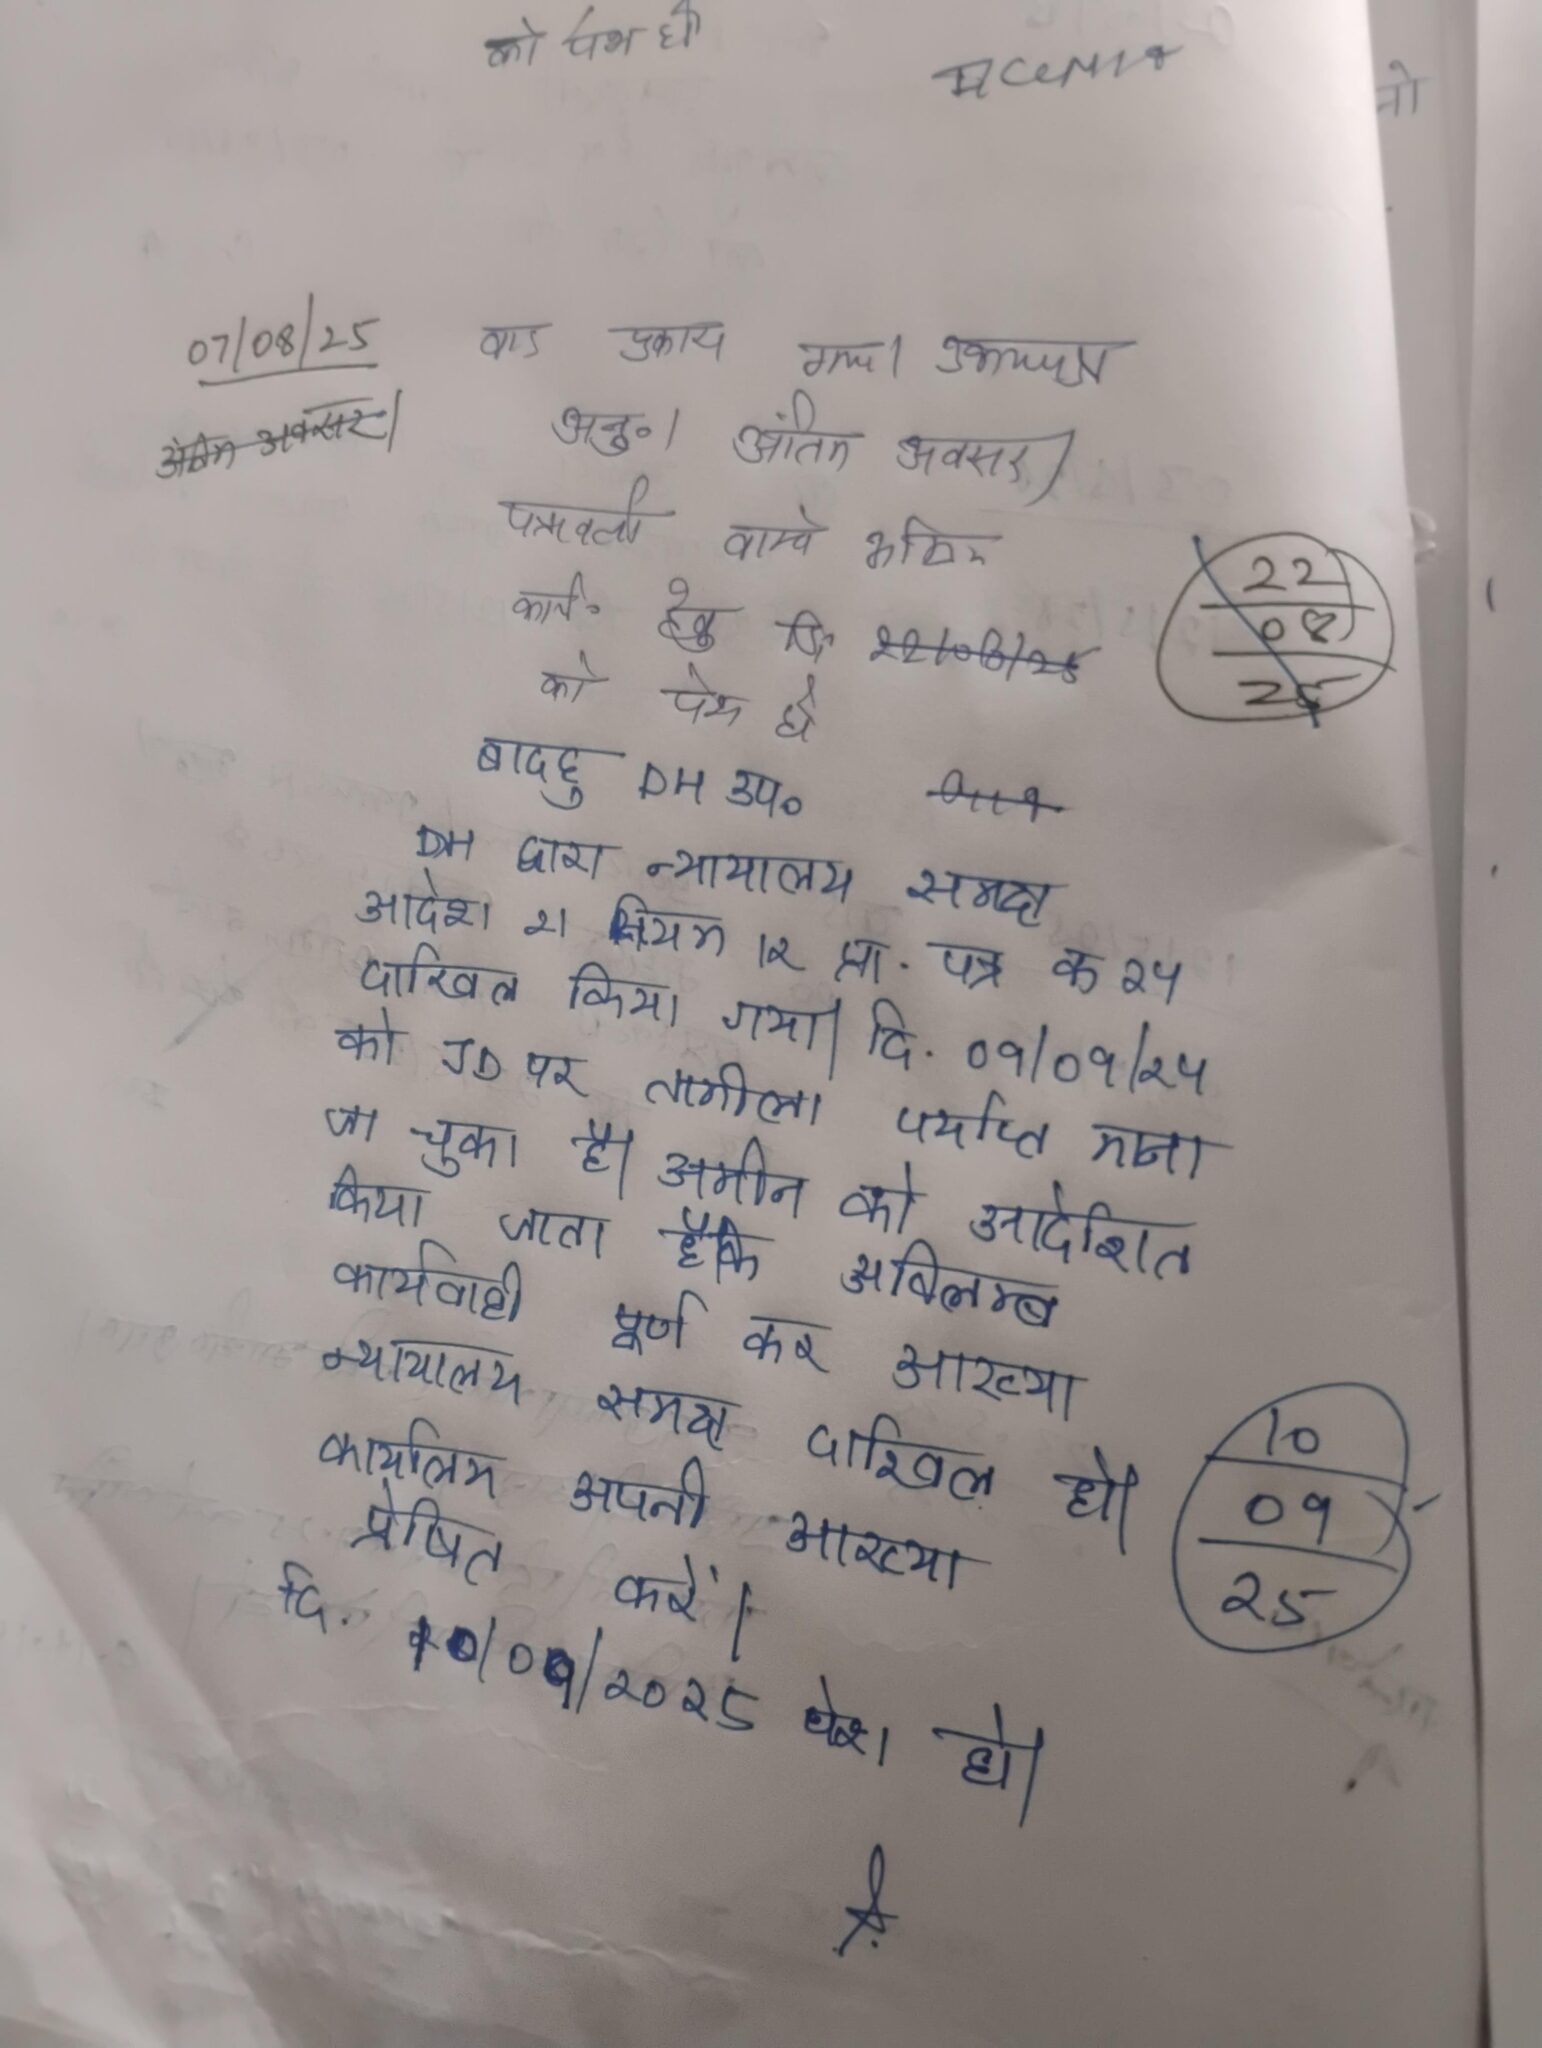 को पेश हो
07/08/25 वाद पुकारा गया। उभयपक्ष
अंतिम अवसर।
अनु०। अंतिम अवसर।
पत्रावली वास्ते अग्रिम
22
08
25
कार्य० हेतु दि 22/08/25
को पेश हो
बादहु DH उप०
DH द्वारा न्यायालय समक्ष
आदेश 21 नियम 12 प्रा. पत्र क 24
दाखिल किया गया। दि. 09/09/24
को JD पर तामीला पर्याप्त माना
जा चुका है। अमीन को आदेशित
किया जाता है कि अविलम्ब
कार्यवाही पूर्ण कर आख्या
न्यायालय समक्ष दाखिल हो।
10
09
25
कार्यालय अपनी आख्या
प्रेषित करें।
दि. 10/09/2025 पेश हो।